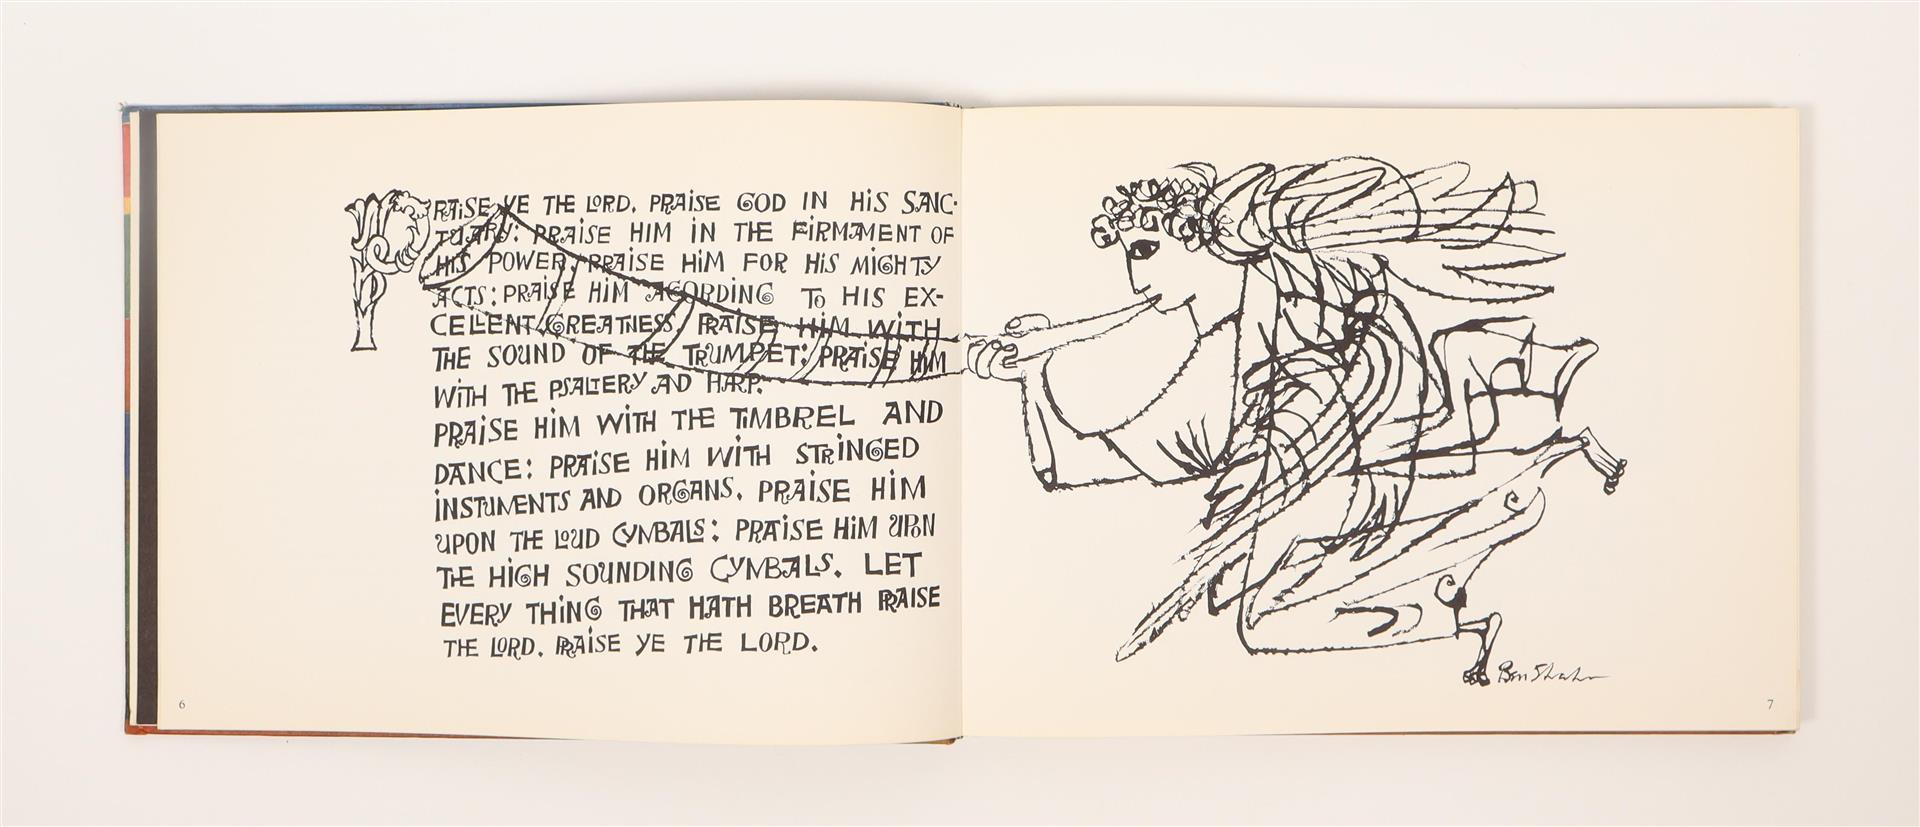 PRAISE YE THE LORD. PRAISE GOD IN HIS SANC-
TUARY: PRAISE HIM IN THE FIRMAMENT OF
HIS POWER. PRAISE HIM FOR HIS MIGHTY
ACTS: PRAISE HIM ACORDING TO HIS EX-
CELLENT GREATNESS. PRAISE HIM WITH
THE SOUND OF THE TRUMPET: PRAISE HIM
WITH THE PSALTERY AND HARP.
PRAISE HIM WITH THE TIMBREL AND
DANCE: PRAISE HIM WITH STRINGED
INSTUMENTS AND ORGANS. PRAISE HIM
UPON THE LOUD CYMBALS: PRAISE HIM UPON
THE HIGH SOUNDING CYMBALS. LET
EVERY THING THAT HATH BREATH PRAISE
THE LORD. PRAISE YE THE LORD.
6
Ben Shahn
7